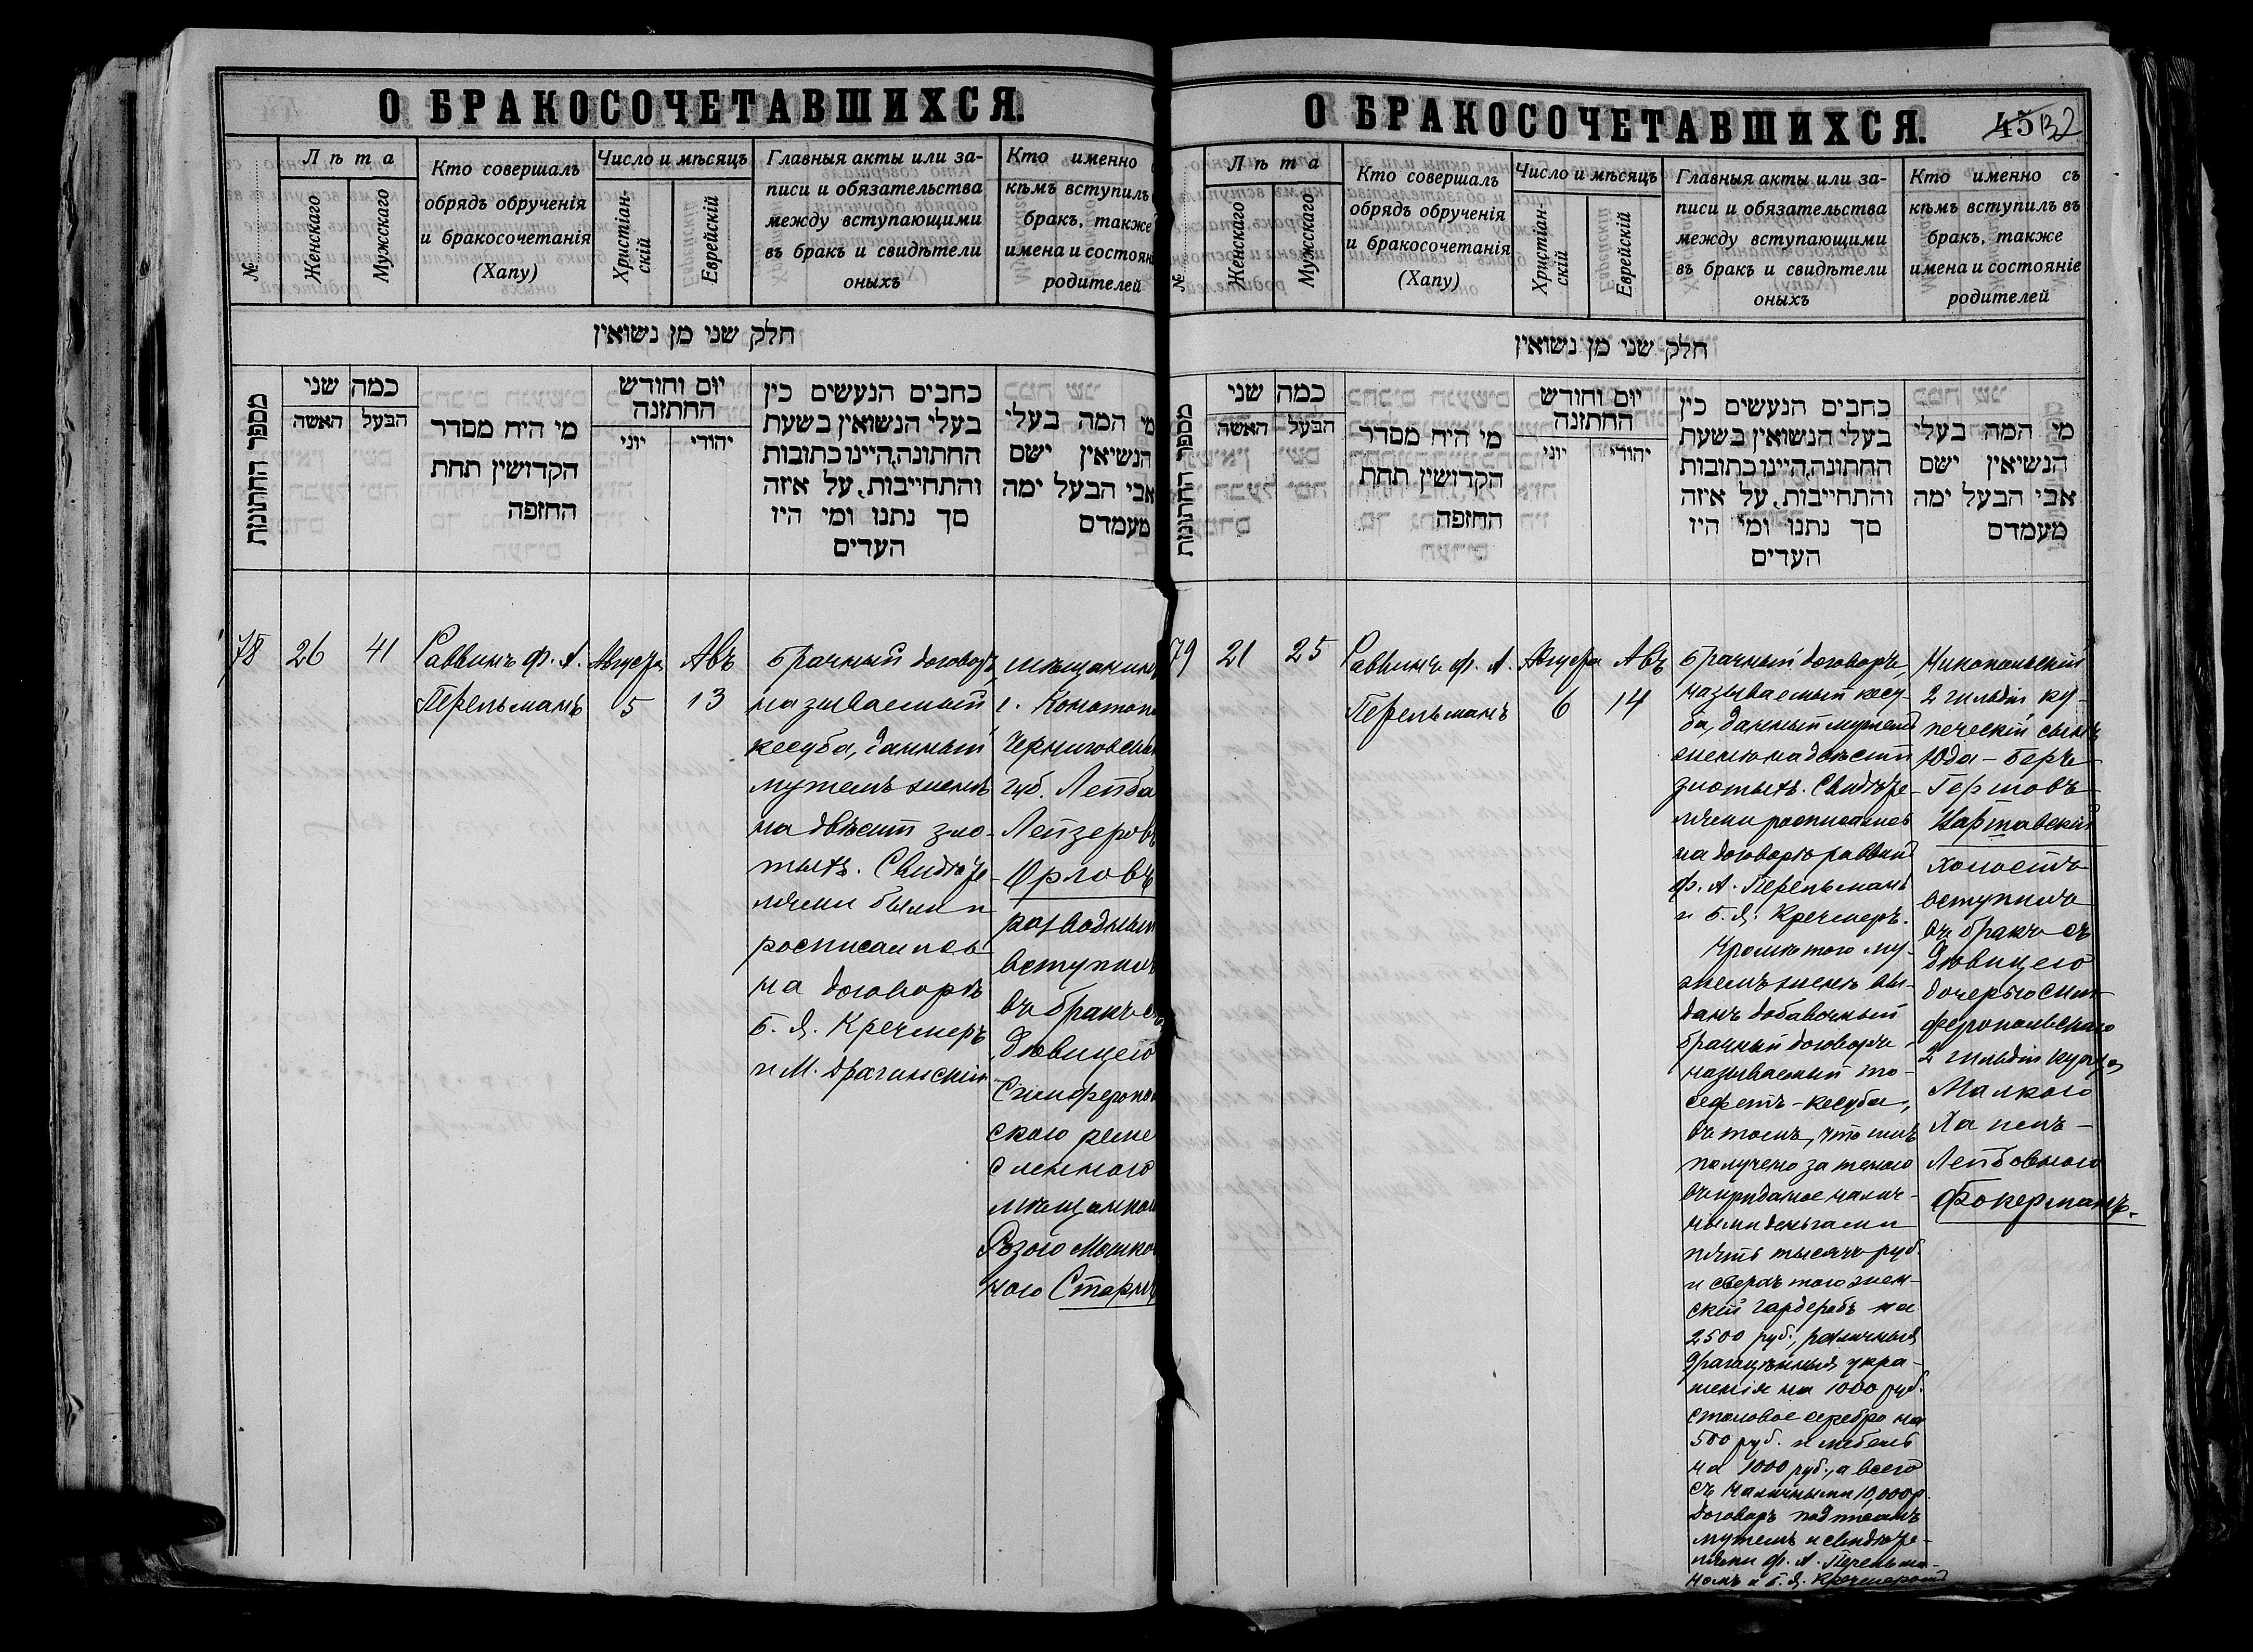 О БРАКОСОЧЕТАВШИХСЯ.
№
Лѣта
Женскаго
Мужскаго
Кто совершалъ
обрядъ обрученія
и бракосочетанія
(Хапу)
Число и мѣсяцъ
Христіан-
скій
Еврейскій
Главныя акты или за-
писи и обязательства
между вступающими
въ бракъ и свидѣтели
оныхъ
Кто именно
кѣмъ вступилъ
бракъ, также
имена и состоян
родителей
חלק שני מן נשואין
מספר החתונות
כמה שני
הבעל
האשה
מי היה מסדר
הקדושין תחת
החופה
יום וחודש
החתונה
יהודי
יוני
כתבים הנעשים בין
בעלי הנשואין בשעת
החתונה, היינו כתובות
והתחייבות, על איזה
סך נתנו ומי היו
העדים
מי המה בעלי
הנשיאין ישם
אבי הבעל ימה
מעמדם
78
26
41
Раввинъ Ф. А.
Перельманъ
Августа
5
Авъ
13
Брачный договоръ
называемый
кесуба, данный
мужемъ женѣ
на двѣсти зло-
тыхъ. Свидѣте-
лями были и
росписались
на договорѣ
Б. Я. Кречмеръ
и М. Драгинскій
мѣщанинъ
г. Конотопа
Черниговской
губ. Лейба
Лейзеровъ
Орловъ
разводный
вступилъ
въ бракъ съ
дѣвицею
Симферополь
скаго реме
сленнаго
мѣщанкою
Розою Мошко
ною Старик
О БРАКОСОЧЕТАВШИХСЯ.
45
132
№
Лѣта
Женскаго
Мужскаго
Кто совершалъ
обрядъ обрученія
и бракосочетанія
(Хапу)
Число и мѣсяцъ
Христіан-
скій
Еврейскій
Главныя акты или за-
писи и обязательства
между вступающими
въ бракъ и свидѣтели
оныхъ
Кто именно съ
кѣмъ вступилъ въ
бракъ, также
имена и состояніе
родителей
חלק שני מן נשואין
מספר החתונות
כמה שני
הבעל
האשה
מי היה מסדר
הקדושין תחת
החופה
יום וחודש
החתונה
יהודי
יוני
כתבים הנעשים בין
בעלי הנשואין בשעת
החתונה, היינו כתובות
והתחייבות, על איזה
סך נתנו ומי היו
העדים
מי המה בעלי
הנשיאין ישם
אבי הבעל ימה
מעמדם
79
21
25
Раввинъ Ф. А.
Перельманъ
Августа
6
Авъ
14
Брачный договоръ,
называемый кесу-
ба, данный мужемъ
женѣ на двѣсти
злотыхъ. Свидѣте-
лями росписались
на договорѣ раввинъ
Ф. А. Перельманъ
и Б. Я. Кречмеръ.
Кромѣ того му-
жемъ женѣ вы-
данъ добавочный
брачный договоръ
называемый то-
сефетъ-кесуба,
въ томъ, что имъ
получено за женою
въ приданое налич-
ными деньгами
пять тысячъ руб.
и сверхъ того жен-
скій гардеробъ на
2500 руб., различныя
драгоцѣнныя укра-
шенія на 1000 руб.
столовое серебро на
500 руб. и мебель
на 1000 руб., а всего
съ наличными 10,000 р.
Договоръ подписанъ
мужемъ и свидѣте-
лями Ф. А. Перельма-
номъ и Б. Я. Кречмеромъ
Никопольскій
2 гильдіи ку-
печескій сынъ
Юда-Беръ
Гершовъ
Варшавскій
холостъ
вступилъ
въ бракъ съ
дѣвицею
дочерью Сим-
феропольскаго
2 гильдіи купца
Малкою
Хаией-
Лейбовною
Фокерманъ.